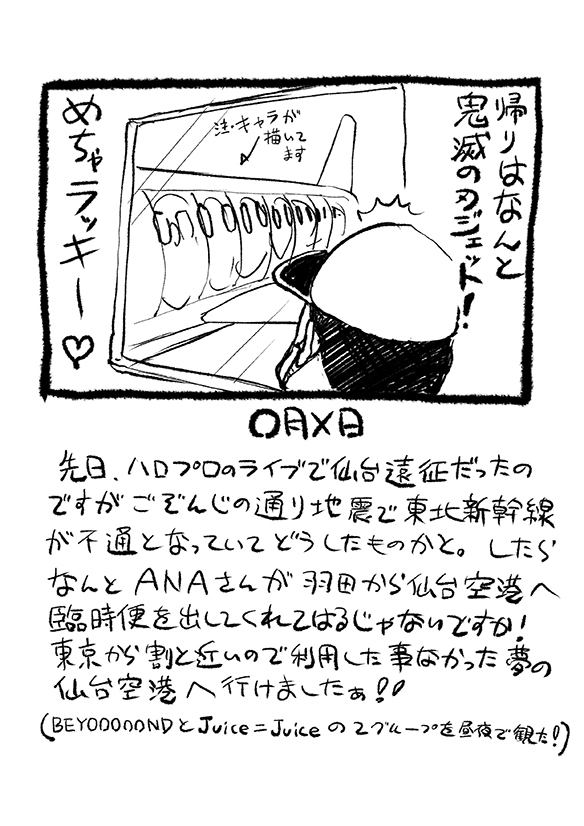 帰りはなんと
鬼滅の刃ジェット!
注・キャラが
描いて
ます
めちゃラッキー♡
〇月×日
先日、ハロプロのライブで仙台遠征だったの
ですがごぞんじの通り地震で東北新幹線
が不通となっていてどうしたものかと。したら
なんとANAさんが羽田から仙台空港へ
臨時便を出してくれてはるじゃないですか!
東京から割と近いので利用した事なかった夢の
仙台空港へ行けましたぁ!!
(BEYOOOOONDとJuice=Juiceの2グループを昼夜で観た!)